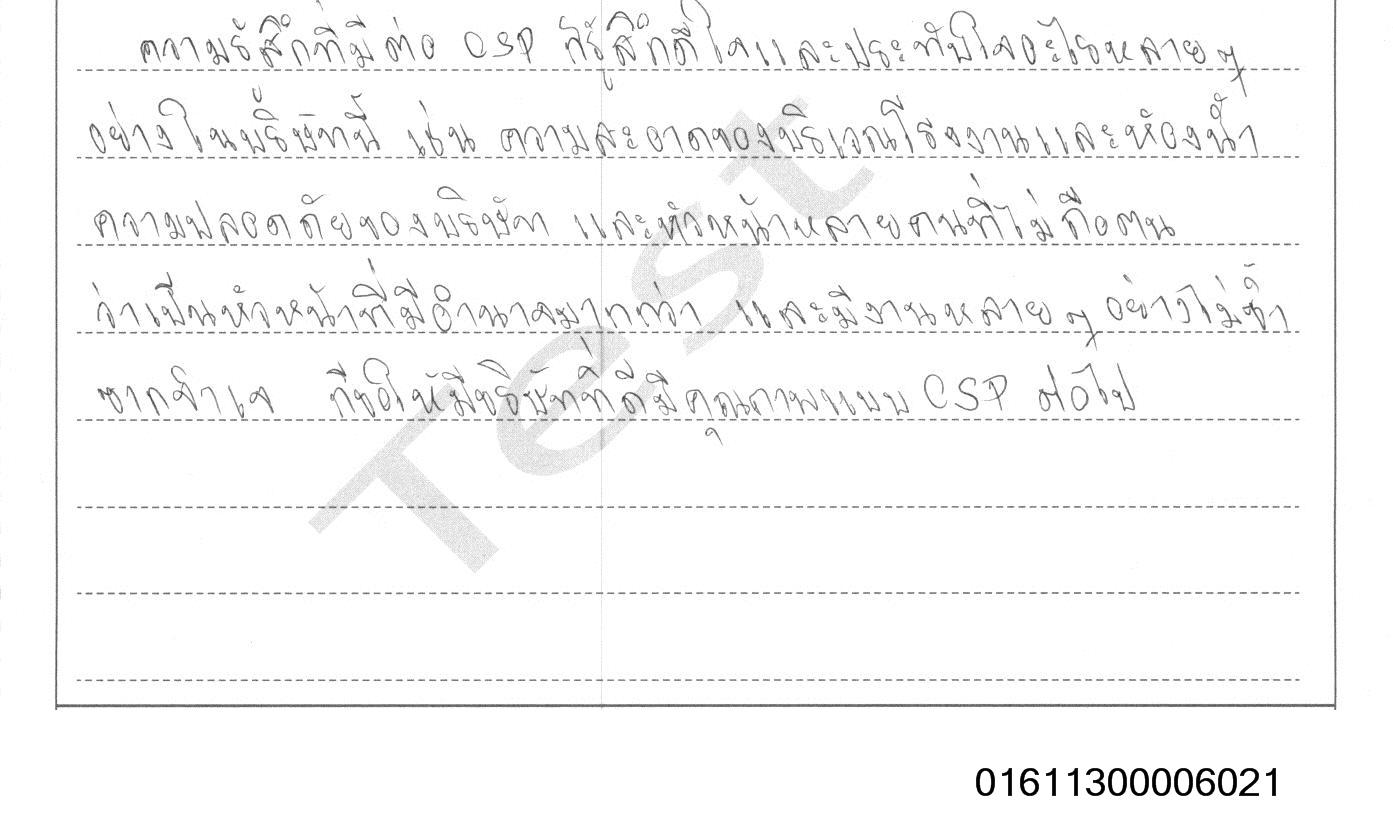 ความรู้สึกที่มีต่อ CSP ก็รู้สึกดีใจและประทับใจอะไรหลายๆ
อย่างในบริษัทนี้ เช่น ความสะอาดของบริเวณโรงงานและห้องน้ำ
ความปลอดภัยของบริษัท และหัวหน้าหลายคนที่ไม่ถือตน
ว่าเป็นหัวหน้าที่มีอำนาจมากกว่า และมีงานหลายๆ อย่างไม่ซ้ำ
ซากจำเจ ก็ขอให้มีบริษัทที่ดีมีคุณภาพแบบ CSP ต่อไป
Test
01611300006021